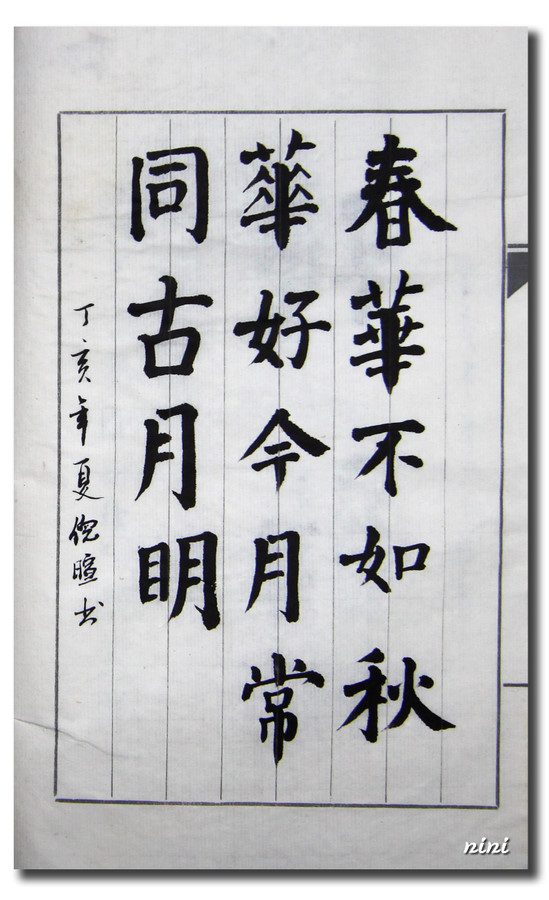 春華不如秋
華好今月常
同古月明
丁亥年夏倪暄书
nini